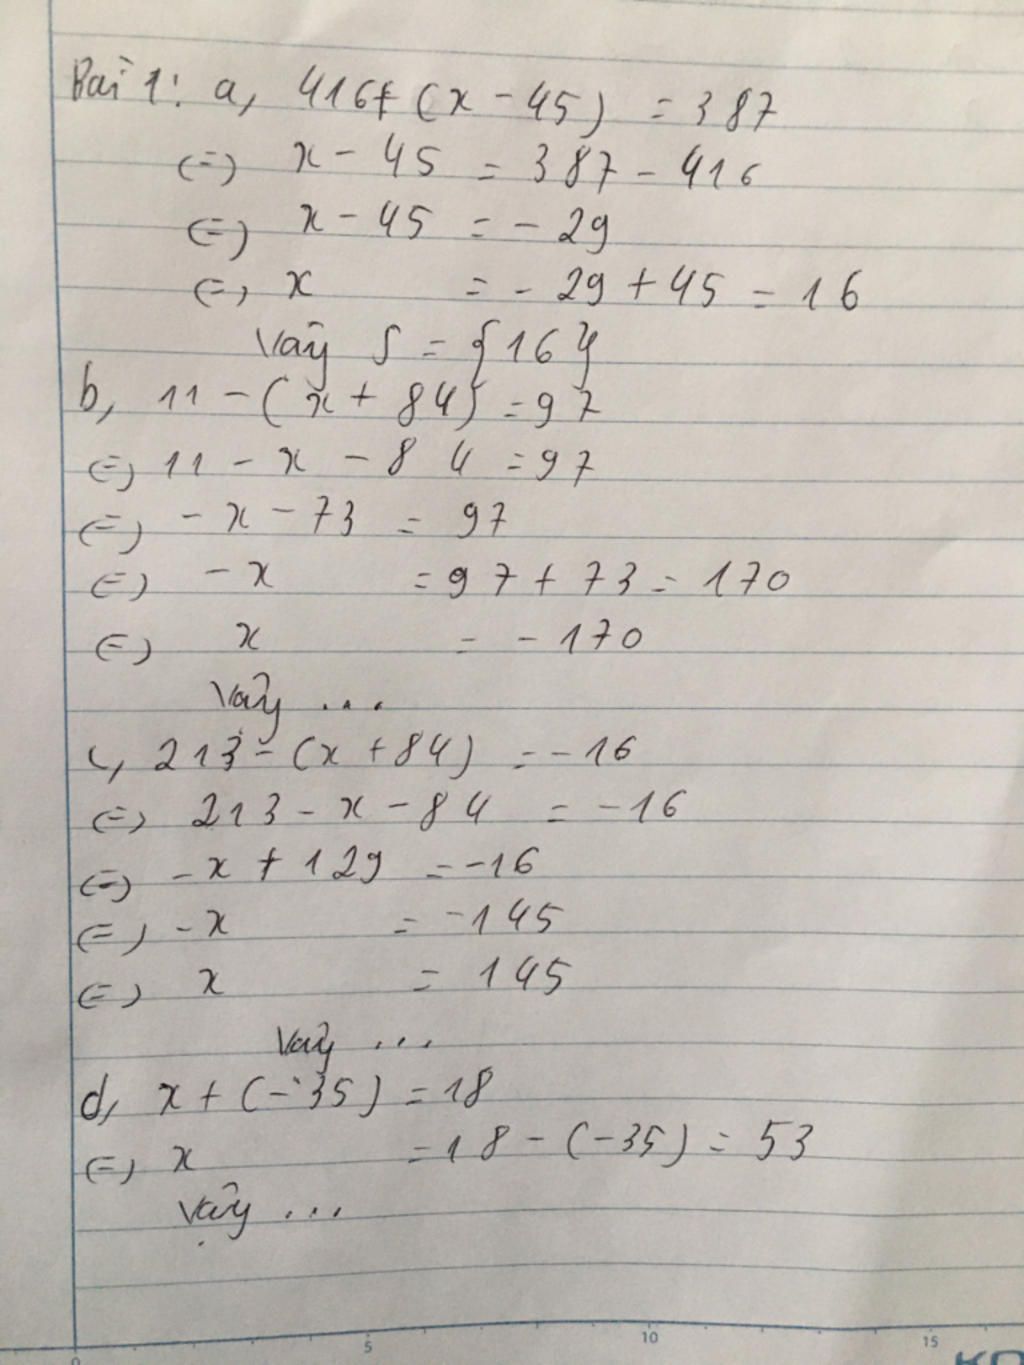 Bài 1: a, 416 + (x - 45) = 387
(=) x - 45 = 387 - 416
(=) x - 45 = - 29
(=) x = - 29 + 45 = 16
Vậy S = {16}
b, 11 - (x + 84) = 97
(=) 11 - x - 84 = 97
(=) - x - 73 = 97
(=) - x = 97 + 73 = 170
(=) x = - 170
Vậy ...
c, 213 - (x + 84) = -16
(=) 213 - x - 84 = -16
(=) -x + 129 = -16
(=) -x = -145
(=) x = 145
Vậy ...
d, x + (-35) = 18
(=) x = 18 - (-35) = 53
Vậy ...
0 5 10 15